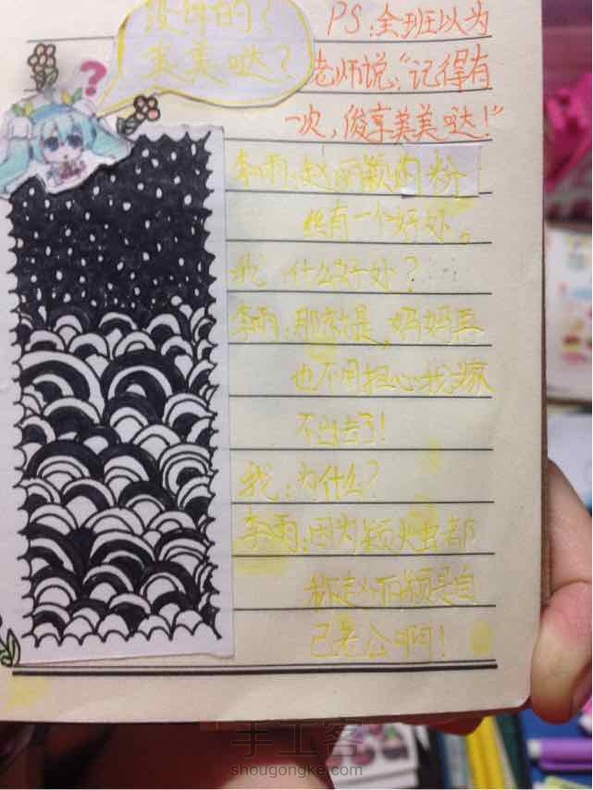 没件的？
美美哒？
PS：全班以为
老师说：“记得有
一次，俊享美美哒！”
李雨：赵丽颖的粉
丝有一个好处。
我：什么好处？
李雨：那就是，妈妈再
也不用担心我嫁
不出去了！
我：为什么？
李雨：因为颖火虫都
称赵丽颖是自
己老公啊！
手工客
shougongke.com